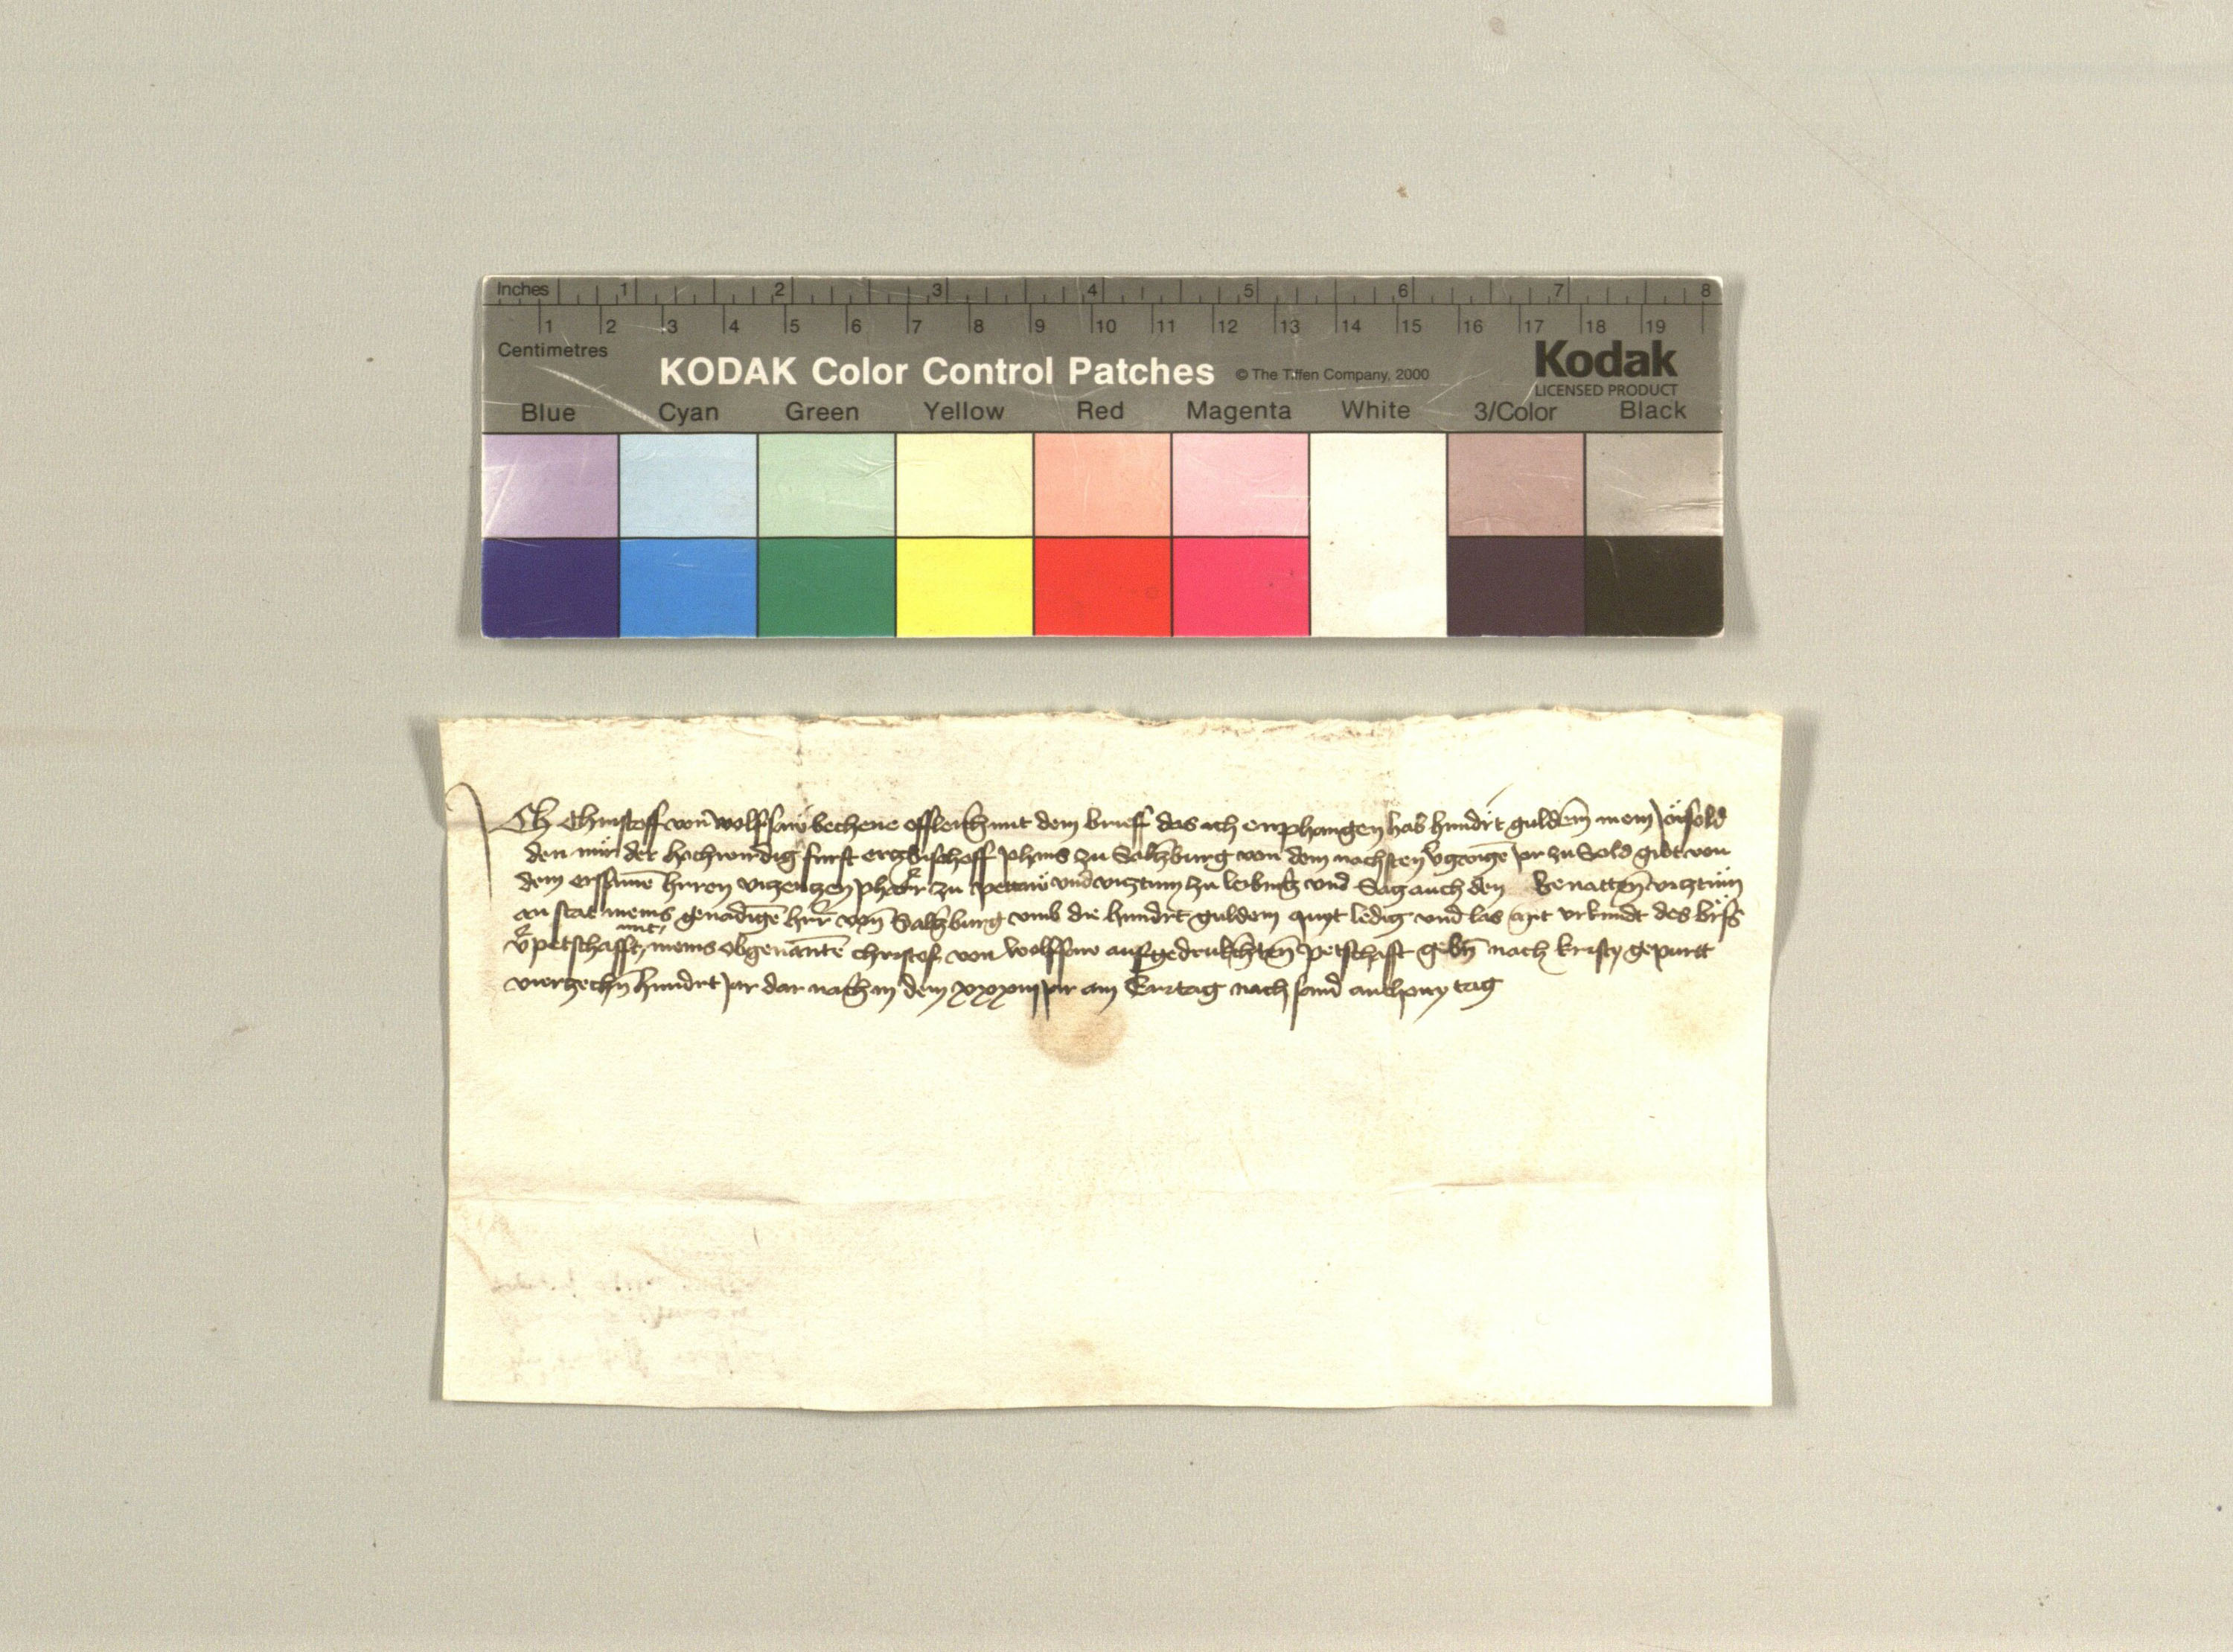 Inches 1 2 3 4 5 6 7 8
1 2 3 4 5 6 7 8 9 10 11 12 13 14 15 16 17 18 19
Centimetres
KODAK Color Control Patches © The Tiffen Company, 2000 Kodak
LICENSED PRODUCT
Blue Cyan Green Yellow Red Magenta White 3/Color Black
Ich Christoff von wolfsaw bechene offleich mit dem brieff das ich emphangen hab hundrt guldem mein sold
den mir der hochwirdig furst erczbischoff Johans zu Salczburg von dem nachsten jar zu Sold gibt von
dem ersamē herren viczenczen zu pettaw und vicztum zu leibnicz vnd Sag auch den benatten vicztum
an stat meins genadigē von Salczburg vmb die hundrt guldem quyt ledig vnd las mit vrkundt des brifs
petschafft mit meins obgenantē christof von wolfsaw aufgedrukchten petschafft gebn nach kristy gepurtt
vierzechn hundrt jar dar nach in dem xxxiii jar am Eritag nach sand anthony tag